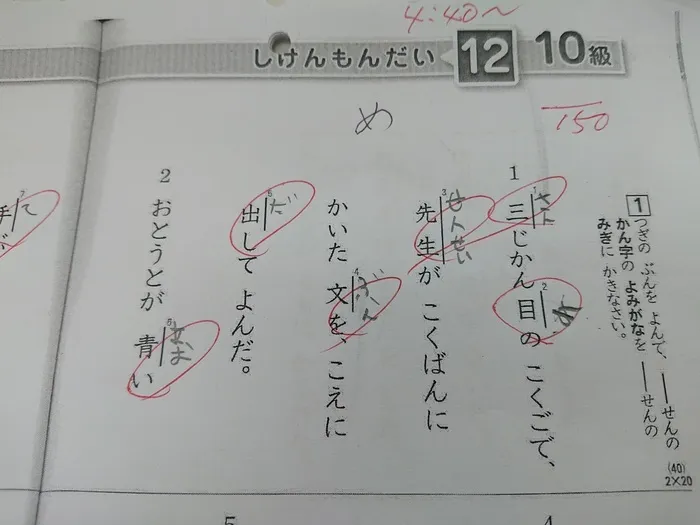 4:40〜
しけんもんだい 12 10級
150
め
1 つぎの ぶんを よんで、――せんの
かん字の よみがなを ――せんの
みぎに かきなさい。
(40)
2×20
1 三じかん目の こくごで、
1 さん
2 め
先生が こくばんに
3 せんせい
かいた 文を、こえに
4 ぶん
出して よんだ。
5 だ
2 おとうとが 青い
6 あお
7 て
手
5
4